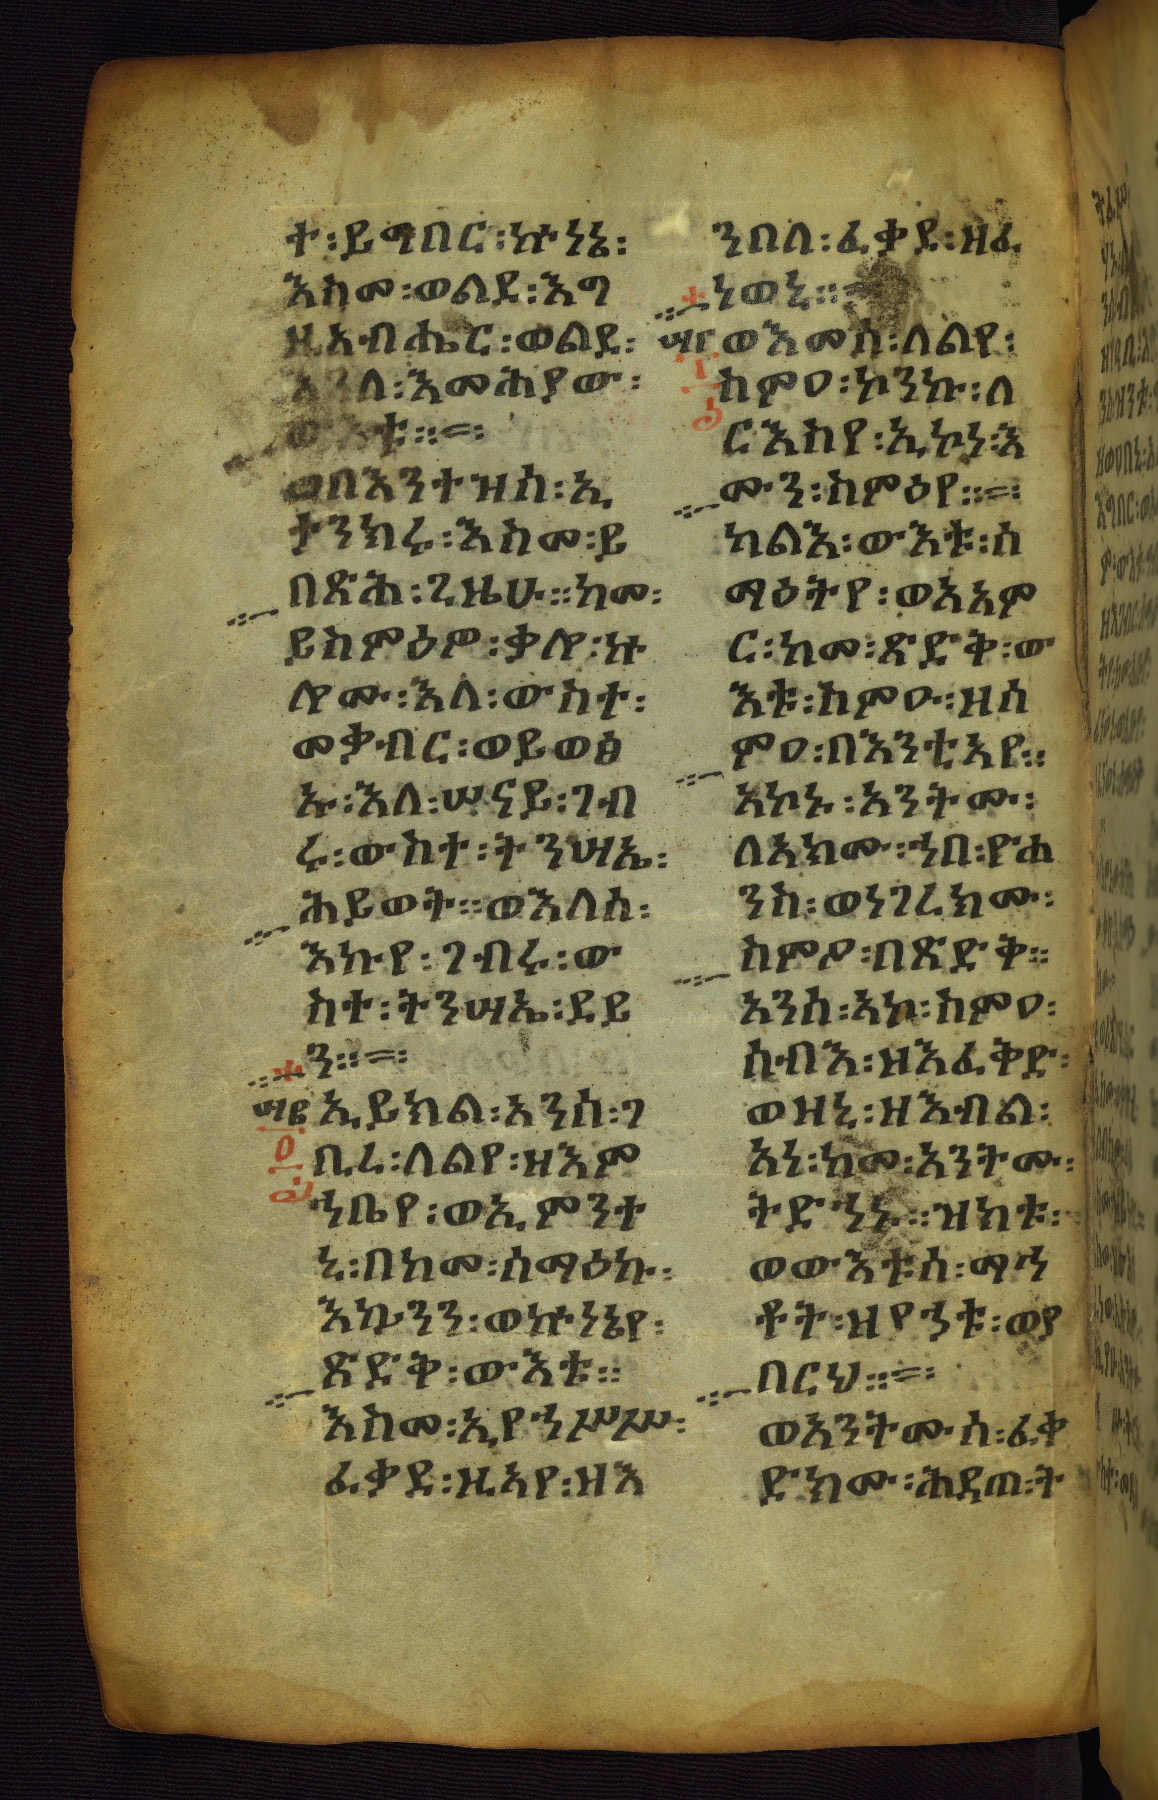 ተ፡ይግበር፡ኵነኔ፡
እስመ፡ወልደ፡እግ
ዚአብሔር፡ወልደ፡
እጓለ፡እመሕያው፡
ውእቱ።=፡
ወበእንተዝሰ፡ኢ
ታንክሩ፡እስመ፡ይ
በጽሕ፡ጊዜሁ።ከመ፡
ይስምዕዎ፡ቃሎ፡ኵ
ሎሙ፡እለ፡ውስተ፡
መቃብር፡ወይወፅ
ኡ፡እለ፡ሠናይ፡ገብ
ሩ፡ውስተ፡ትንሣኤ፡
ሕይወት።ወእለሰ፡
እኩየ፡ገብሩ፡ው
ስተ፡ትንሣኤ፡ደይ
ን።=፡
ኢይክል፡አንሰ፡ገ
ቢረ፡ለልየ፡ዘእም
ኀቤየ፡ወኢምንተ
ኒ፡በከመ፡ሰማዕኩ፡
እኴንን፡ወኵነኔየ፡
ጽድቅ፡ውእቱ።
እስመ፡ኢየኀሥሥ፡
ፈቃደ፡ዚአየ፡ዘእ
ንበለ፡ፈቃደ፡ዘፈ
ነወኒ።=
ወእመሰ፡ለልየ፡
ስምዐ፡ኮንኩ፡ለ
ርእስየ፡ኢኮነ፡እ
ሙን፡ስምዕየ።=፡
ካልእ፡ውእቱ፡ሰ
ማዕትየ፡ወአአም
ር፡ከመ፡ጽድቅ፡ው
እቱ፡ስምዑ፡ዘሰ
ምዐ፡በእንቲአየ።
አኮኑ፡አንትሙ፡
ለአክሙ፡ኀበ፡ዮሐ
ንስ፡ወነገረክሙ፡
ስምዖ፡በጽድቅ።
አንሰ፡አኮ፡ስምዐ፡
ሰብእ፡ዘእፈቅድ፡
ወዝኒ፡ዘእብል፡
አነ፡ከመ፡አንትሙ፡
ትድኀኑ።ዝክቱ፡
ወውእቱሰ፡ማኅ
ቶት፡ዘየኀቱ፡ወያ
በርህ።=፡
ወአንትሙሰ፡ፈቀ
ድክሙ፡ሕዳጠ፡ት